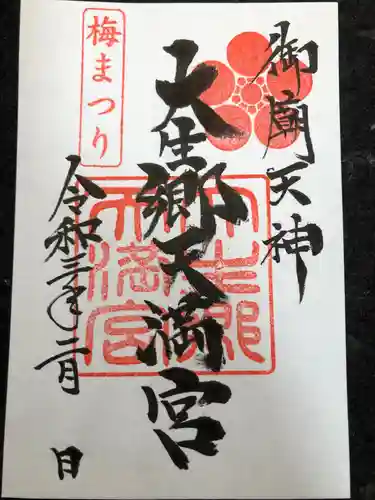 御廟天神
大生郷天満宮
梅まつり
令和三年二月 日
大生郷
天満宮